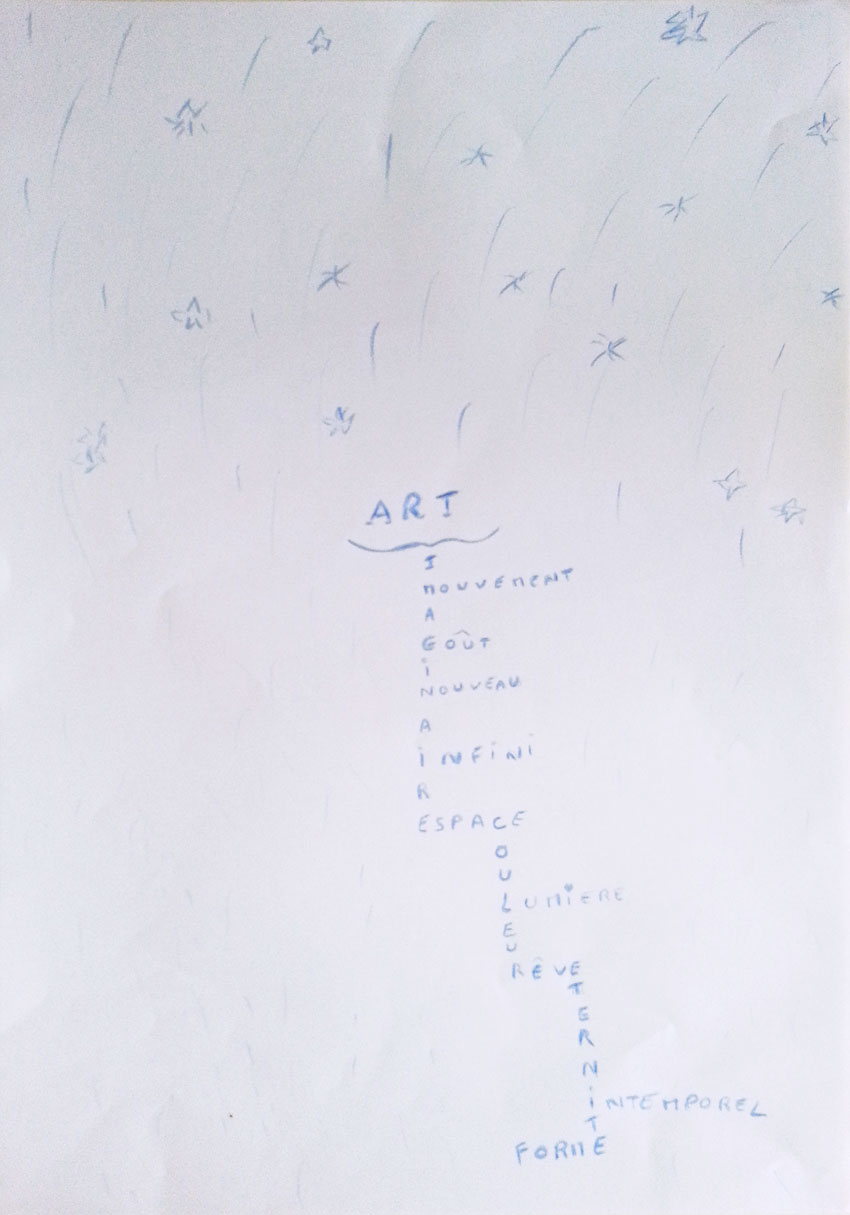 ART
I
MOUVEMENT
A
GOÛT
i
NOUVEAU
A
iNFiNi
R
ESPACE
O
U
LUMiERE
E
U
RÊVE
T
E
R
N
iNTEMPOREL
T
FORME